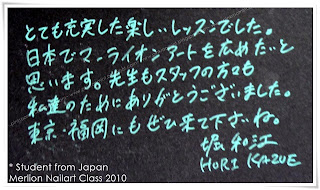 とても充実した楽しいレッスンでした。
日本でマーライオンアートを広めたいと
思います。先生もスタッフの方々も
私達のためにありがとうございました。
東京・福岡にもぜひ来て下さいね。
堀 和江
HORI KAZUE
* Student from Japan
Merlion Nailart Class 2010